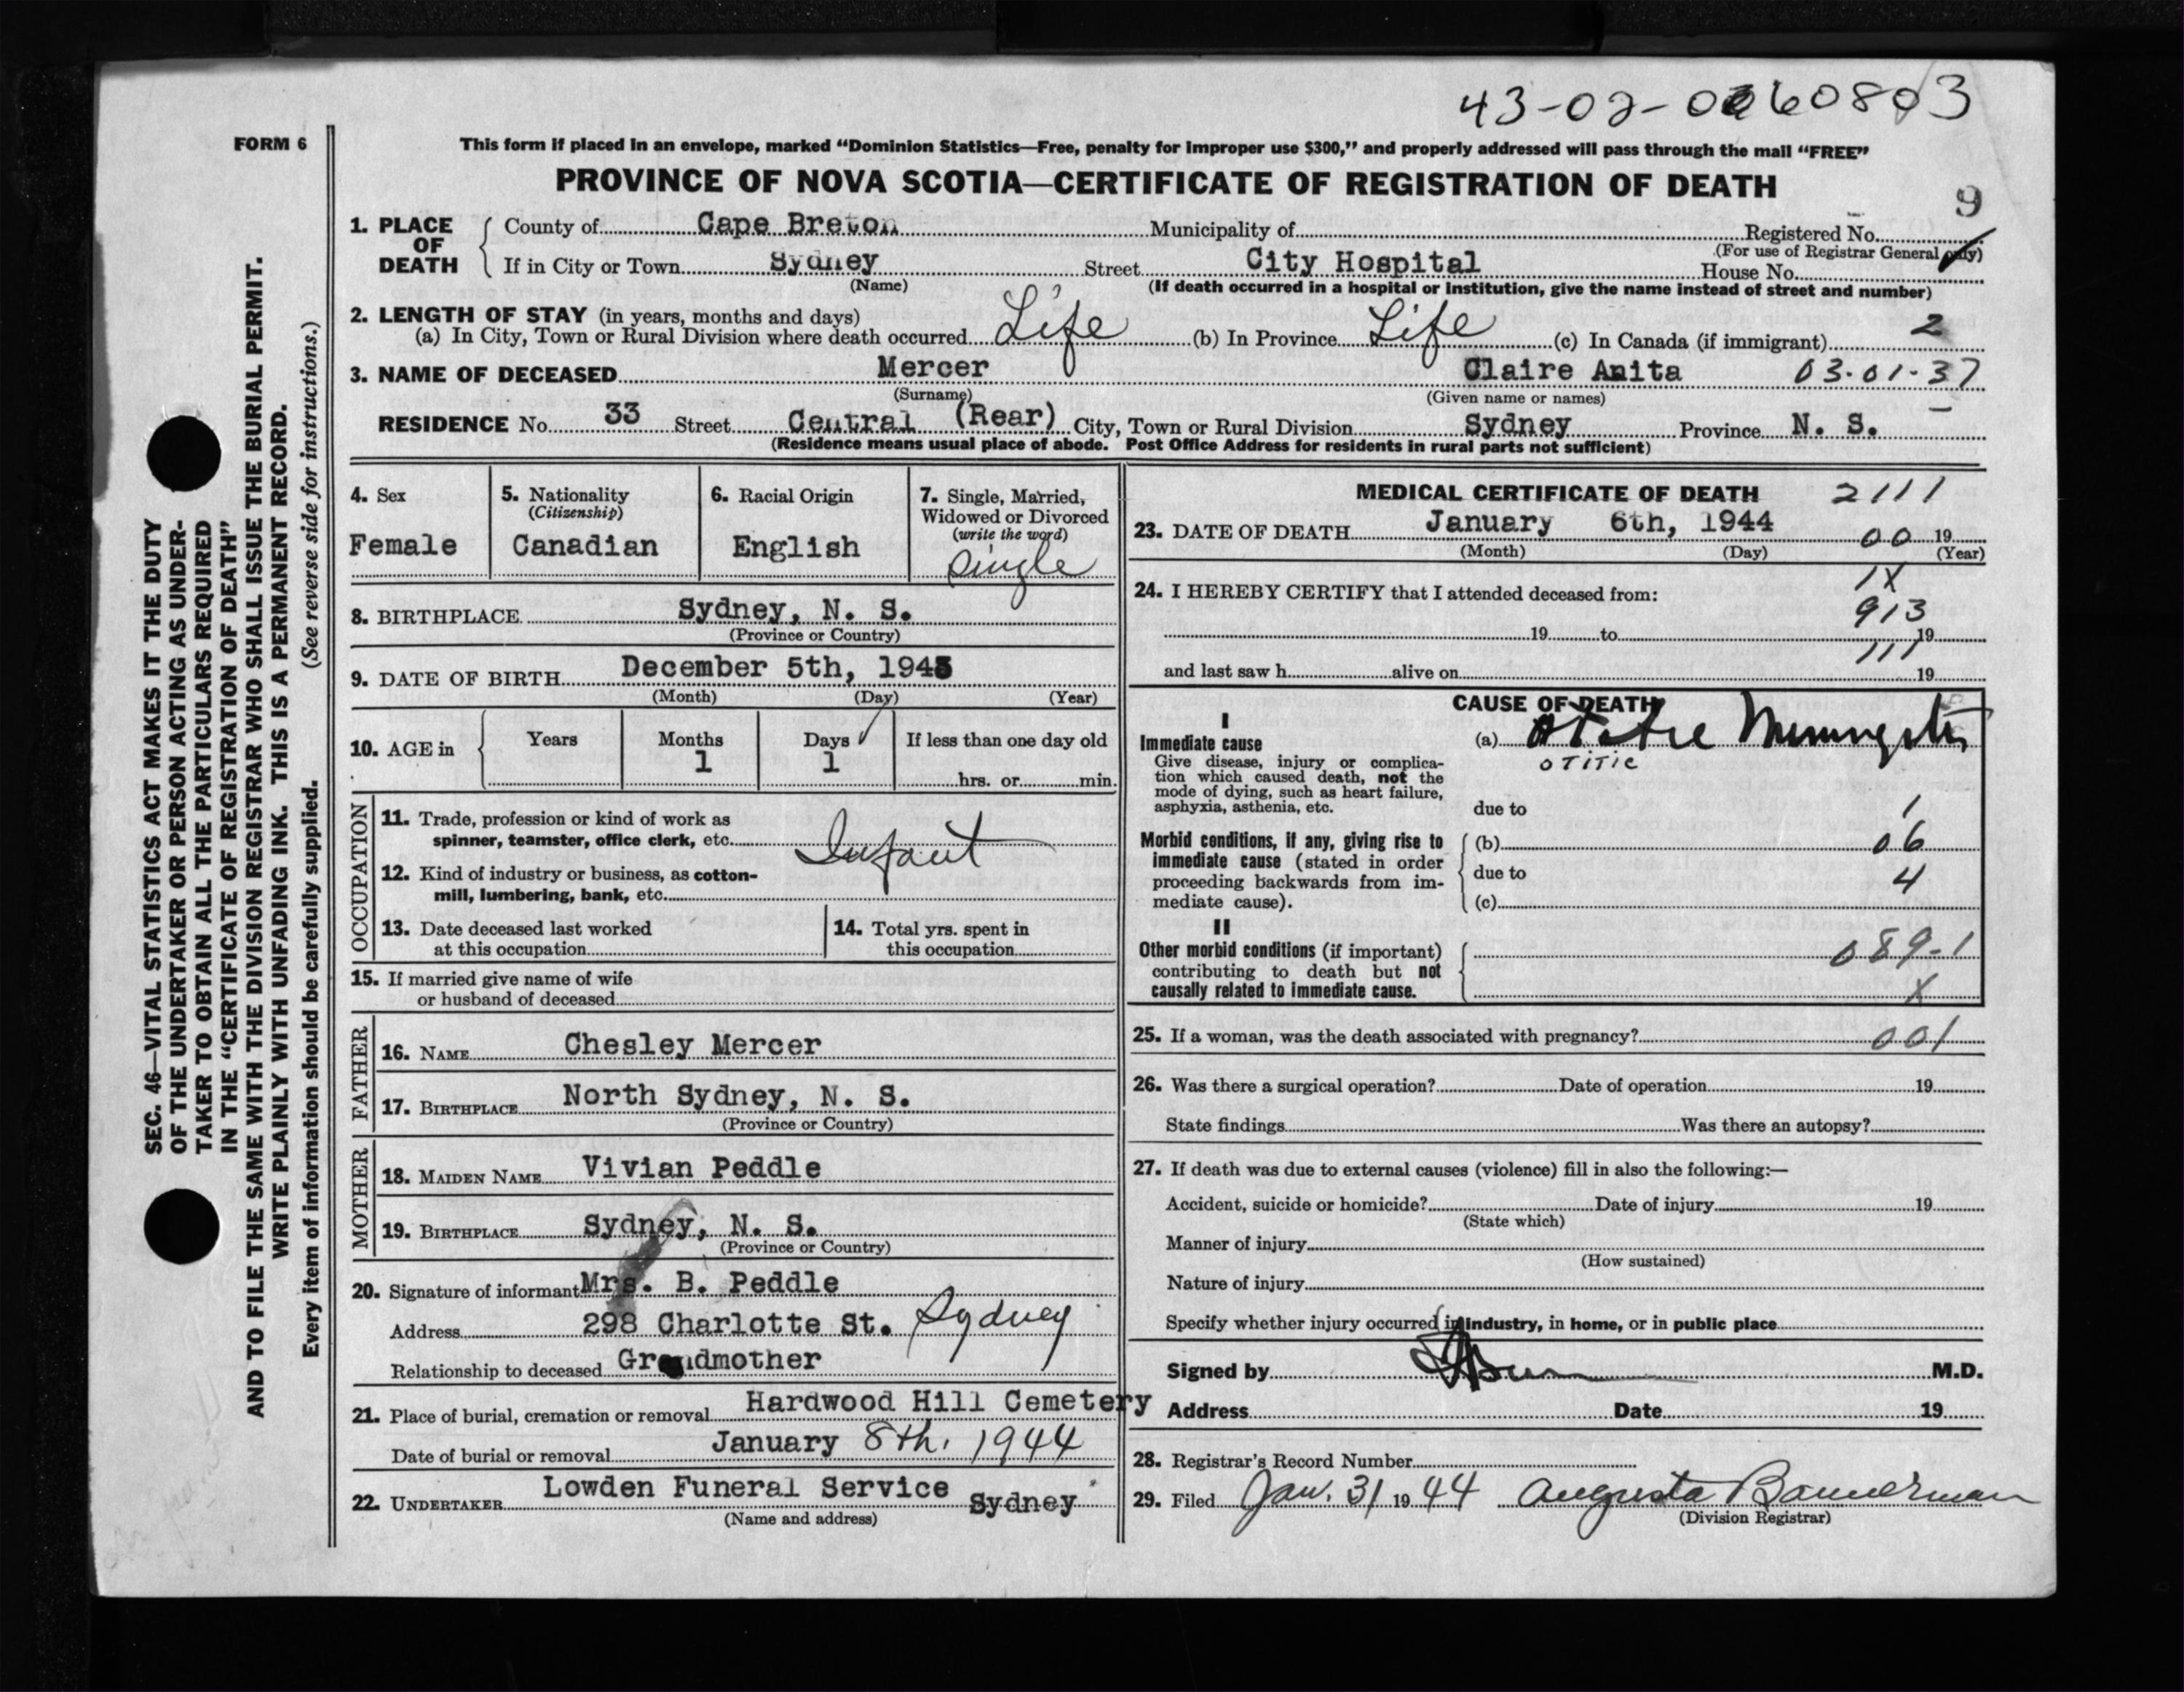 43-02-0060803
FORM 6
This form if placed in an envelope, marked “Dominion Statistics—Free, penalty for improper use $300,” and properly addressed will pass through the mail “FREE”
PROVINCE OF NOVA SCOTIA—CERTIFICATE OF REGISTRATION OF DEATH
9
1. PLACE OF DEATH County of Cape Breton Municipality of Registered No.
(For use of Registrar General only)
If in City or Town Sydney Street City Hospital House No.
(Name) (If death occurred in a hospital or institution, give the name instead of street and number)
2. LENGTH OF STAY (in years, months and days)
(a) In City, Town or Rural Division where death occurred Life (b) In Province Life (c) In Canada (if immigrant) 2
3. NAME OF DECEASED Mercer Claire Anita 03-01-37
(Surname) (Given name or names)
RESIDENCE No. 33 Street Central (Rear) City, Town or Rural Division Sydney Province N. S.
(Residence means usual place of abode. Post Office Address for residents in rural parts not sufficient)
4. Sex 5. Nationality 6. Racial Origin 7. Single, Married,
(Citizenship) Widowed or Divorced
(write the word)
Female Canadian English Single
8. BIRTHPLACE Sydney, N. S.
(Province or Country)
9. DATE OF BIRTH December 5th, 1943
(Month) (Day) (Year)
10. AGE in Years Months Days If less than one day old
1 1
hrs. or min.
OCCUPATION
11. Trade, profession or kind of work as
spinner, teamster, office clerk, etc. Infant
12. Kind of industry or business, as cotton-
mill, lumbering, bank, etc.
13. Date deceased last worked 14. Total yrs. spent in
at this occupation this occupation
15. If married give name of wife
or husband of deceased
FATHER
16. NAME Chesley Mercer
17. BIRTHPLACE North Sydney, N. S.
(Province or Country)
MOTHER
18. MAIDEN NAME Vivian Peddle
19. BIRTHPLACE Sydney, N. S.
(Province or Country)
20. Signature of informant Mrs. B. Peddle
Address 298 Charlotte St. Sydney
Relationship to deceased Grandmother
21. Place of burial, cremation or removal Hardwood Hill Cemetery
Date of burial or removal January 8th, 1944
22. UNDERTAKER Lowden Funeral Service Sydney
(Name and address)
MEDICAL CERTIFICATE OF DEATH 2111
23. DATE OF DEATH January 6th, 1944 00 19
(Month) (Day) (Year)
24. I HEREBY CERTIFY that I attended deceased from: 1X
913
19 to 19
111
and last saw h alive on 19
CAUSE OF DEATH
I
Immediate cause (a) Otitic Meningitis
OTITIC
Give disease, injury or complica-
tion which caused death, not the
mode of dying, such as heart failure,
asphyxia, asthenia, etc. due to 1
Morbid conditions, if any, giving rise to (b) 06
immediate cause (stated in order
proceeding backwards from im- due to 4
mediate cause). (c)
II
Other morbid conditions (if important) 089-1
contributing to death but not
causally related to immediate cause. X
25. If a woman, was the death associated with pregnancy? 001
26. Was there a surgical operation? Date of operation 19
State findings Was there an autopsy?
27. If death was due to external causes (violence) fill in also the following:—
Accident, suicide or homicide? Date of injury 19
(State which)
Manner of injury
(How sustained)
Nature of injury
Specify whether injury occurred in industry, in home, or in public place
Signed by M.D.
Address Date 19
28. Registrar's Record Number
29. Filed Jan. 31 19 44 Augusta Bannerman
(Division Registrar)
SEC. 46—VITAL STATISTICS ACT MAKES IT THE DUTY
OF THE UNDERTAKER OR PERSON ACTING AS UNDER-
TAKER TO OBTAIN ALL THE PARTICULARS REQUIRED
IN THE “CERTIFICATE OF REGISTRATION OF DEATH”
AND TO FILE THE SAME WITH THE DIVISION REGISTRAR WHO SHALL ISSUE THE BURIAL PERMIT.
WRITE PLAINLY WITH UNFADING INK. THIS IS A PERMANENT RECORD.
Every item of information should be carefully supplied. (See reverse side for instructions.)